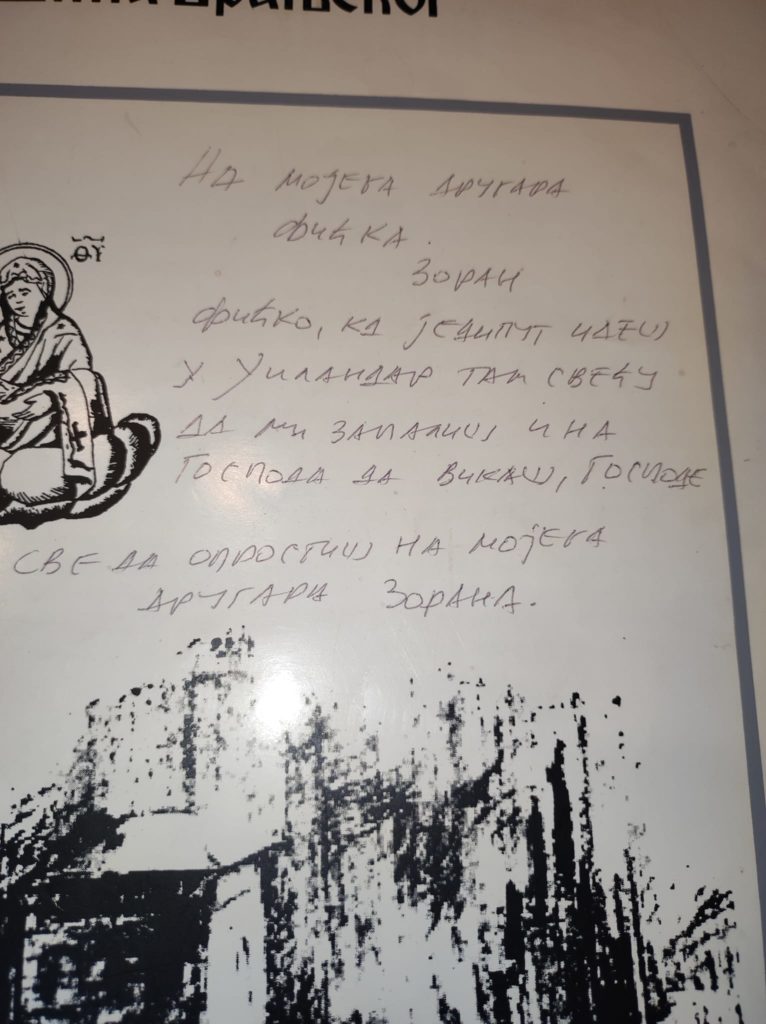 Врањског
ΘΥ
На мојега другара
Фићка.
Зоран
Фићко, ка једипут идеш
у Хиландар там свећу
да ми запалиш и на
Господа да викаш, Господе
све да опростиш на мојега
другара Зорана.